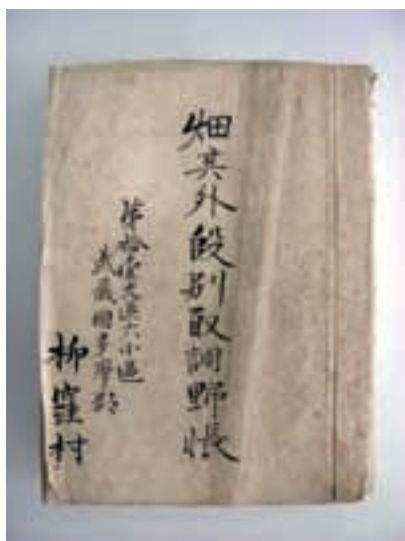 畑其外段別取調野帳
第拾壹大区六小区
武蔵國多摩郡
柳窪村